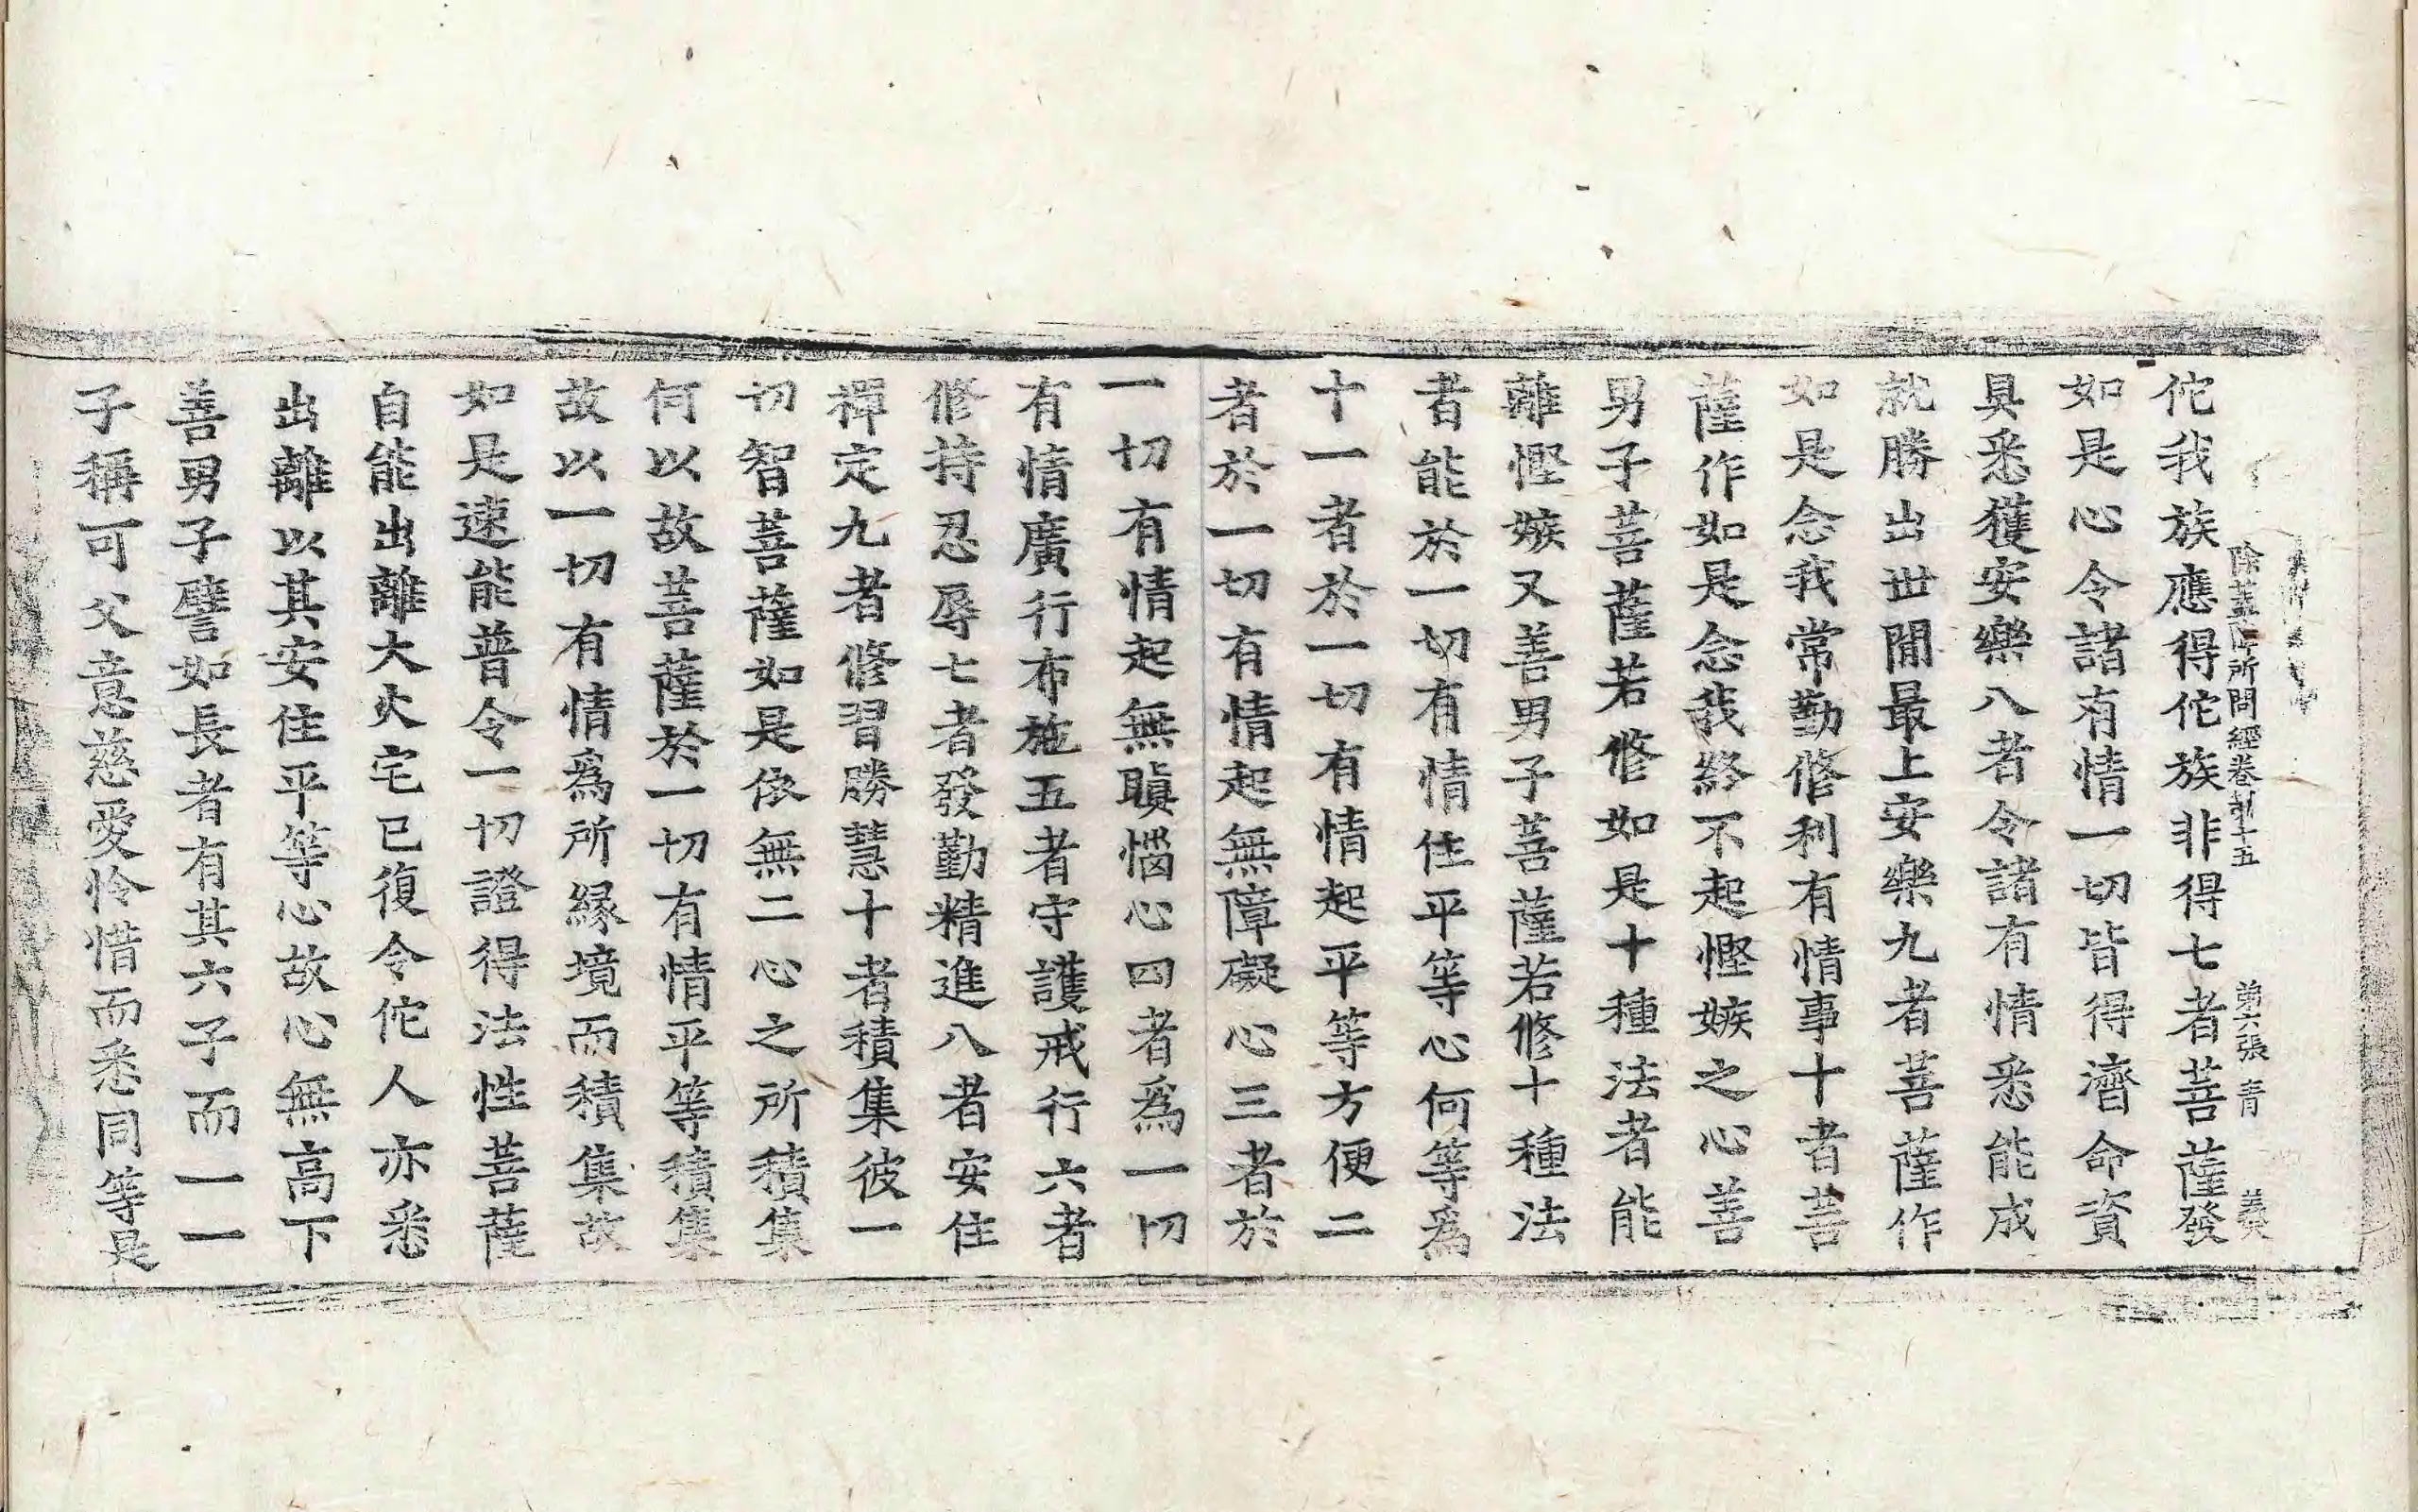 除蓋障所問經卷第十五 第六張 青
佗我族應得佗族非得七者菩薩發
如是心令諸有情一切皆得濟命資
具悉獲安樂八者令諸有情悉能成
就勝出世閒最上安樂九者菩薩作
如是念我常勤修利有情事十者菩
薩作如是念我終不起慳嫉之心善
男子菩薩若修如是十種法者能
離慳嫉又善男子菩薩若修十種法
者能於一切有情住平等心何等爲
十一者於一切有情起平等方便二
者於一切有情起無障礙心三者於
一切有情起無瞋惱心四者爲一切
有情廣行布施五者守護戒行六者
修持忍辱七者發勤精進八者安住
禪定九者修習勝慧十者積集彼一
切智菩薩如是依無二心之所積集
何以故菩薩於一切有情平等積集
故以一切有情爲所緣境而積集故
如是速能普令一切證得法性菩薩
自能出離大火宅已復令佗人亦悉
出離以其安住平等心故心無高下
善男子譬如長者有其六子而一一
子稱可父意慈愛怜惜而悉同等是